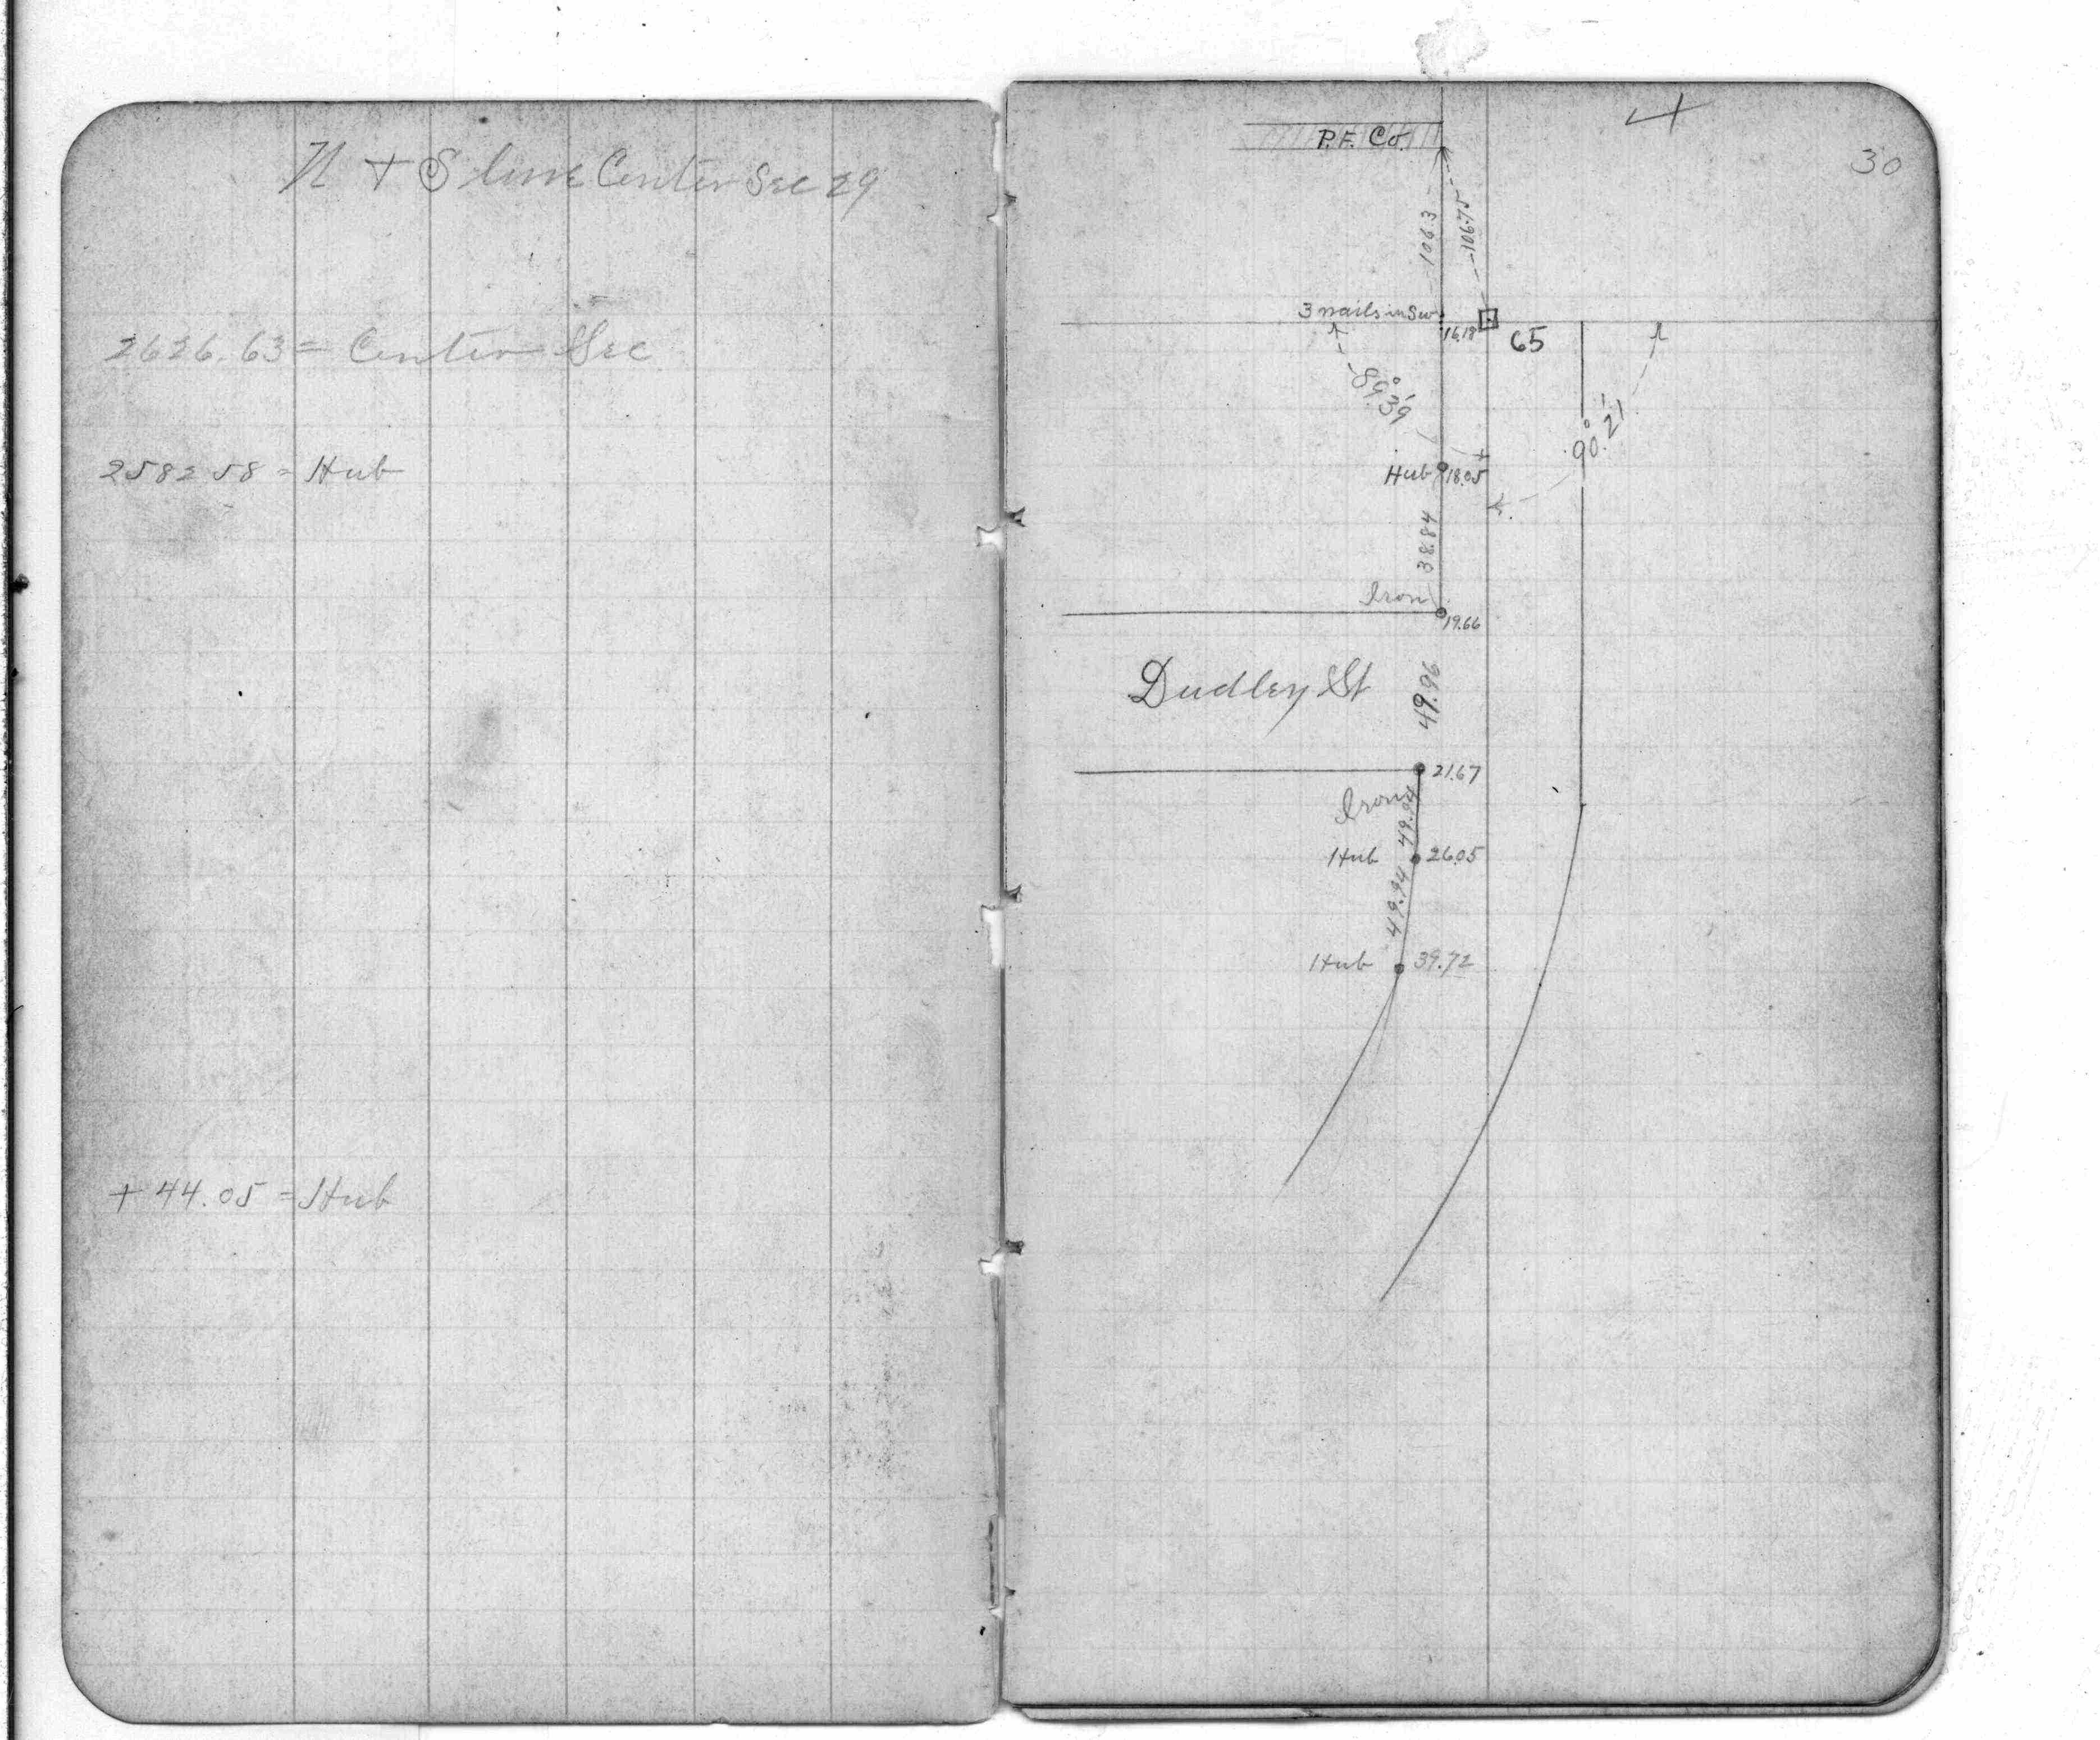 N + S line Center Sec 29
2626.63 = Center Sec
2582 58 = Hub
+ 44.05 = Hub
30
P.F. Co.
106.3
106.75
3 nails in Sw.
16.18
65
89° 39'
90° 21'
Hub 18.05
38.84
Iron
19.66
Dudley St
49.96
21.67
Iron
49.94
Hub 26.05
49.94
Hub 39.72